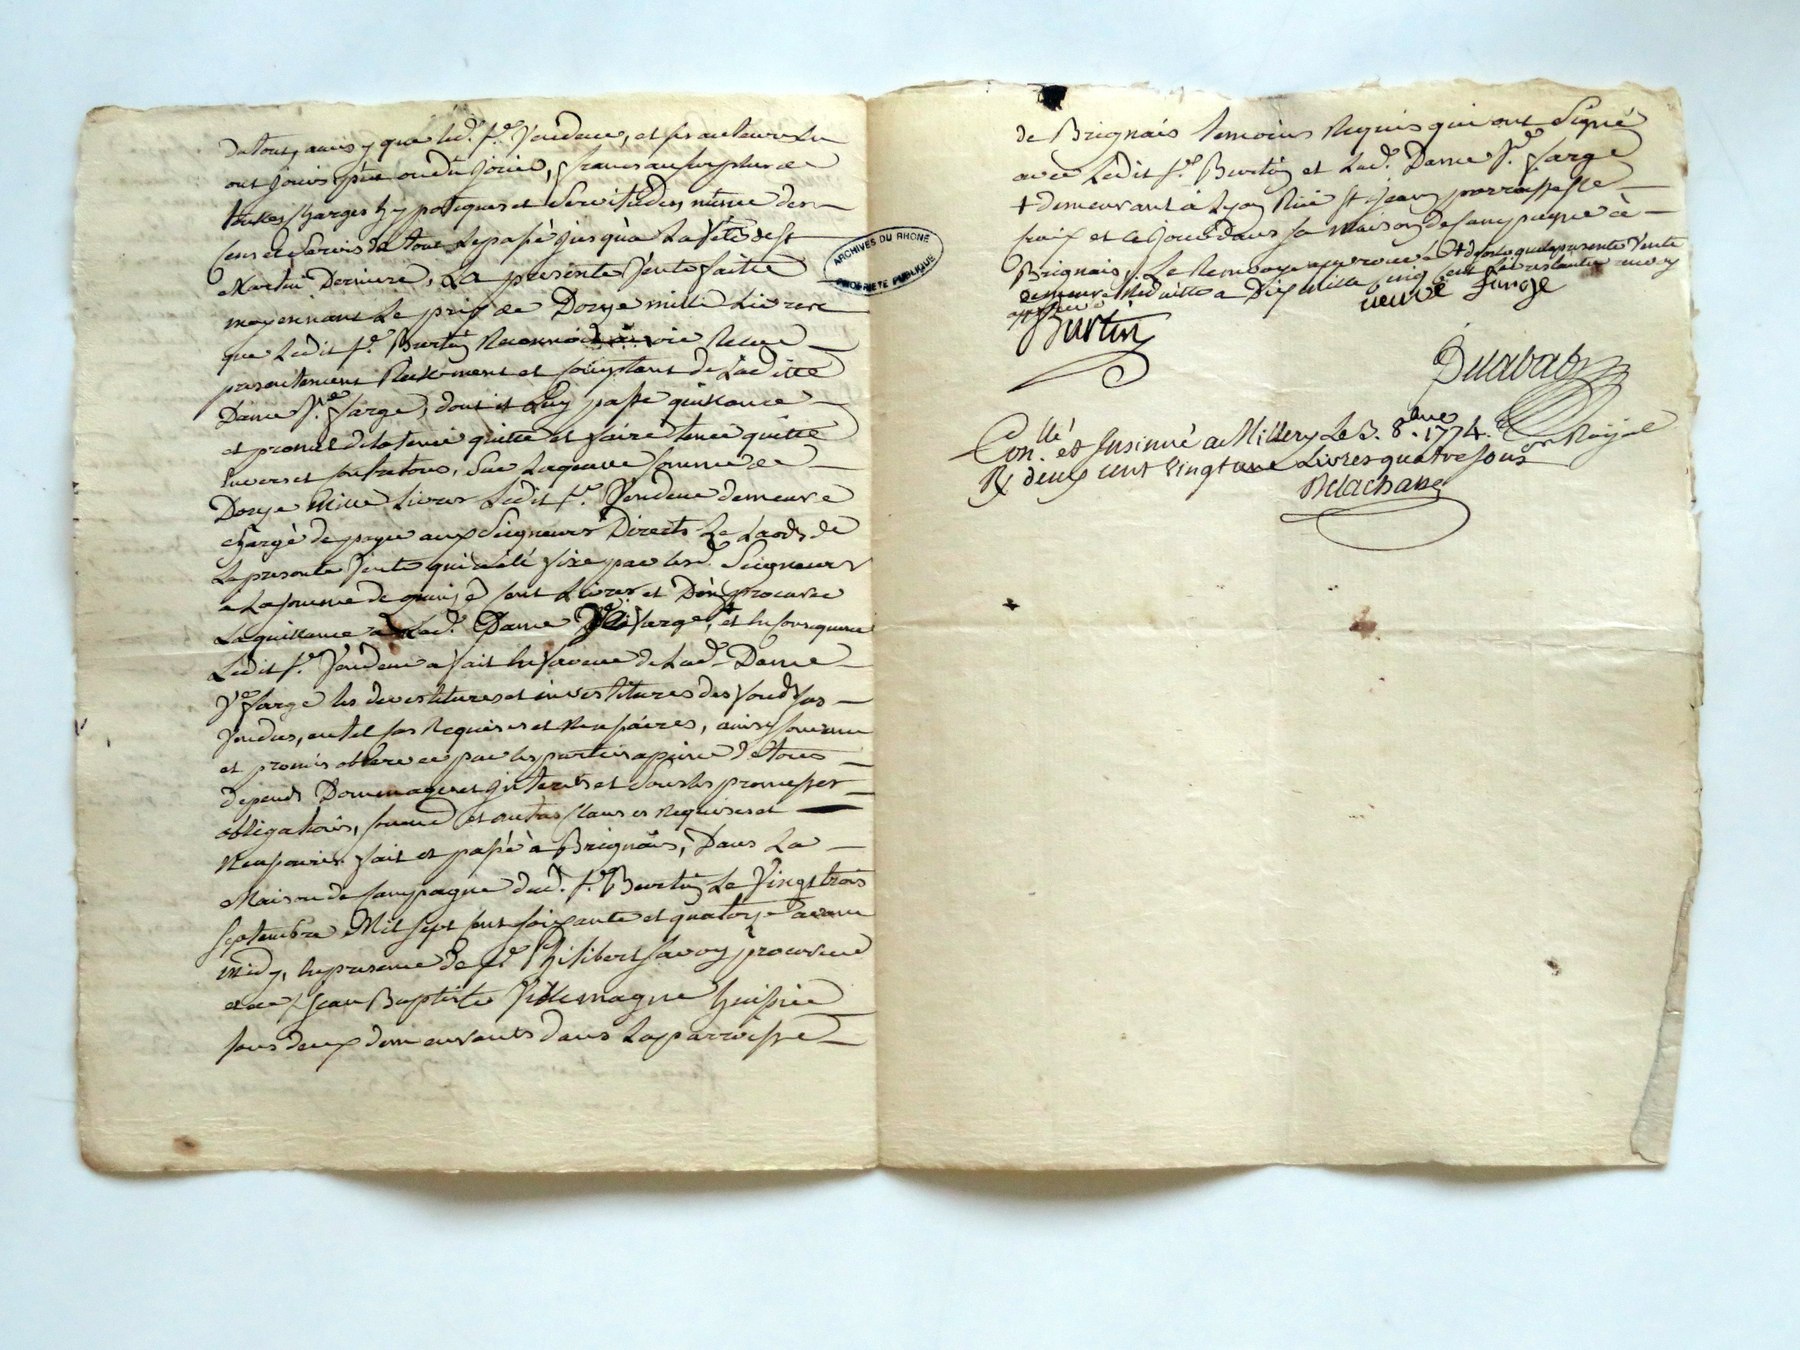 de tout, ainsy que led. Sr. Vendeur, et ses auteurs en
ont jouis, pû ou dû jouir, francs au surplus de
toutes charges hypoteques et servitudes même des
cens et servis de tout le passé jusqu'à la fête de St
Martin Derniere, La presente Vente faitte
moyennant Le prix de Douze mille Livres
que Ledit Sr. Burtin Reconnoit avoir Recue
presentement Reellement et comptant de Laditte
Dame Ve. Farge, dont il Luy passe quittance
et promet de la tenir quitte et faire tenir quitte
envers et contre tous, Sur Laquelle somme de
Douze Mille Livres Ledit Sr. Vendeur demeure
chargé de payer aux Seigneurs Directs Le Laods de
La presente Vente qui a été fixé par lesd. Seigneurs
a La somme de quinze cent Livres et D'en procurer
La quittance a Lad. Dame Ve. Farge, et en consequence
Ledit Sr. Vendeur a fait en faveur de Lad. Dame
Ve Farge les devestitures et investitures des fonds
Vendus, en tel cas Requises et Necessaires, ainsy convenu
et promis observer par les parties a peine de tous
depends Dommages et interets et sous les promesses
obligations, et autres clauses Requises et
Necessaires fait et passé à Brignais, Dans La
Maison de Campagne dud. Sr. Burtin Le Vingt trois
Septembre Mil Sept cent soixante et quatorze avant
midy, En presence de Sr. Philibert Savoy procureur
et de Sr Jean Baptiste Villemagne huissier
tous deux demeurants dans La parroisse
ARCHIVES DU RHONE
PROPRIETE PUBLIQUE
de Brignais temoins Requis qui ont Signé
avec Ledit Sr. Burtin et Lad. Dame Ve. Farge
+ demeurant à Lyon Rüe St Jean parroisse Ste
Croix et de present dans sa Maison de Campagne à
Brignais, Le Renvoy approuvé + de sorte que la presente Vente
demeure Reduitte a Dix mille cinq cent Livres
approuvé
veuve farge
Burtin
Con.llé et Insinué a Millery Le 3. 8bre 1774.
R deux cent vingt une Livres quatre sous
Delachans
Royal